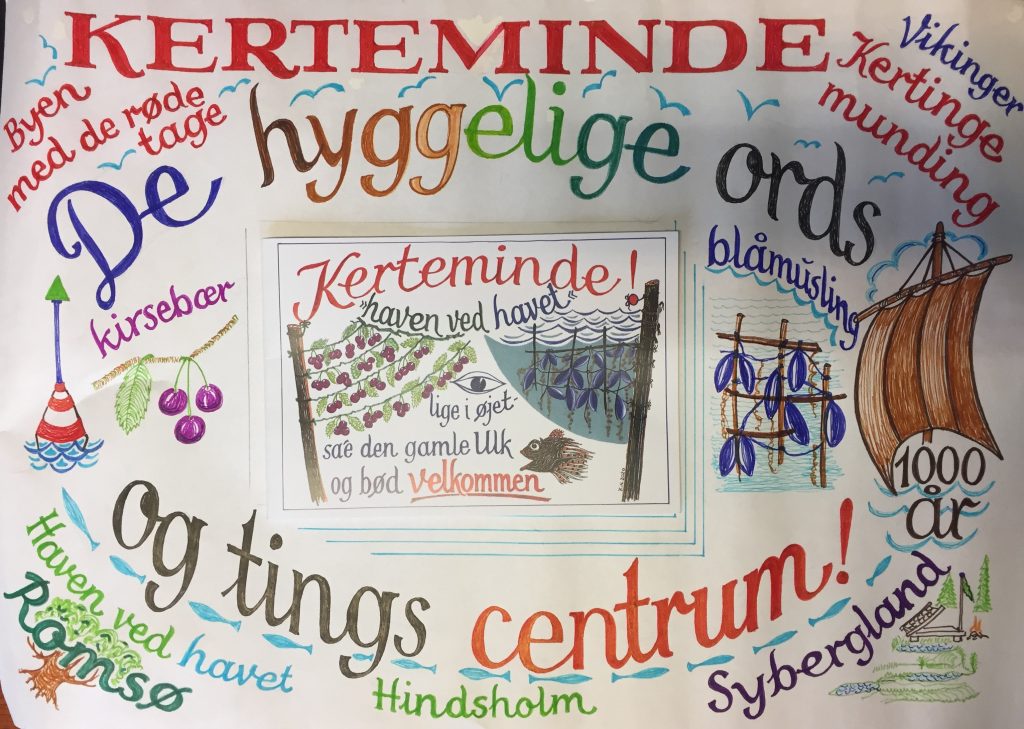 KERTEMINDE
Byen
med de røde
tage
Vikinger
Kertinge
munding
De hyggelige ords
kirsebær
blåmusling
Kerteminde!
"haven ved havet"
lige i øjet-
sa'e den gamle Ulk
og bød velkommen
1000
år
og tings centrum!
Haven ved havet
Romsø
Hindsholm
Sybergland